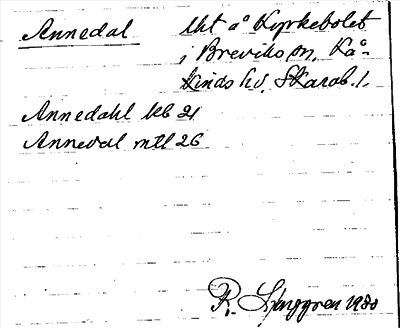 Annedal lht å Kyrkebolet
i Breviks sn. Kå-
kinds hd. Skarab. l.
Annedahl kb 21
Annedal mtl 26
R. Ljunggren 1930